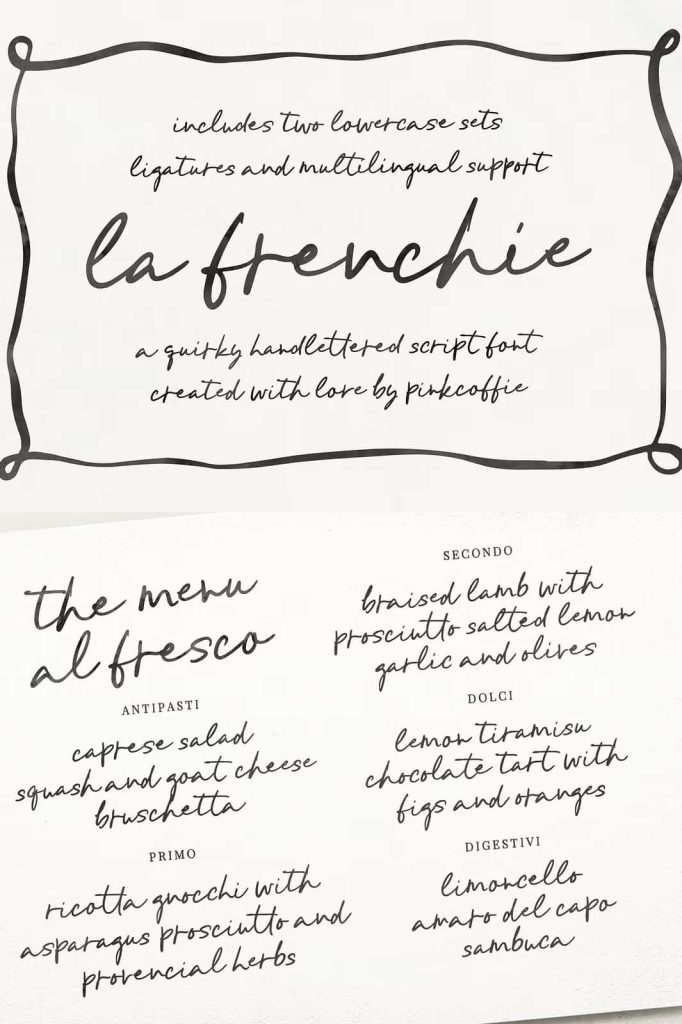 includes two lowercase sets
ligatures and multilingual support
la frenchie
a quirky handlettered script font
created with love by pinkcoffie
the menu
al fresco
ANTIPASTI
caprese salad
squash and goat cheese
bruschetta
PRIMO
ricotta gnocchi with
asparagus prosciutto and
provencial herbs
SECONDO
braised lamb with
prosciutto salted lemon
garlic and olives
DOLCI
lemon tiramisu
chocolate tart with
figs and oranges
DIGESTIVI
limoncello
amaro del capo
sambuca